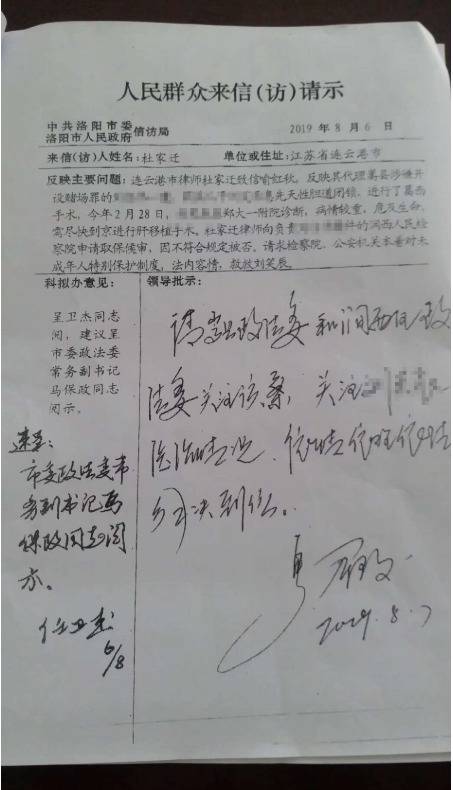 人民群众来信(访)请示
中共洛阳市委
洛阳市人民政府 信访局 2019 年 8 月 6 日
来信(访)人姓名:杜家迁 单位或住址:江苏省连云港市
反映主要问题:连云港市律师杜家迁致信俞红秋,反映其代理嵩县涉嫌开
设赌场罪的 患先天性胆道闭锁,进行了葛西
手术,今年 2 月 28 日, 郑大一附院诊断,病情较重,危及生命,
需尽快到京进行肝移植手术。杜家迁律师向负责 件的涧西人民检
察院申请取保候审,因不符合规定被否。请求检察院、公安机关本着对未
成年人特别保护制度,法内容情,救救刘笑辰。
科拟办意见: 领导批示:
呈卫杰同志
阅,建议呈
市委政法委
常务副书记
马保政同志
阅示。
速呈:
市委政法委常
务副书记马
保政同志阅
示。
任卫杰
6/8
请嵩县政法委和涧西区政
法委关注该案,关注
医治情况,依法
决到位。
马保政
2019.8.7